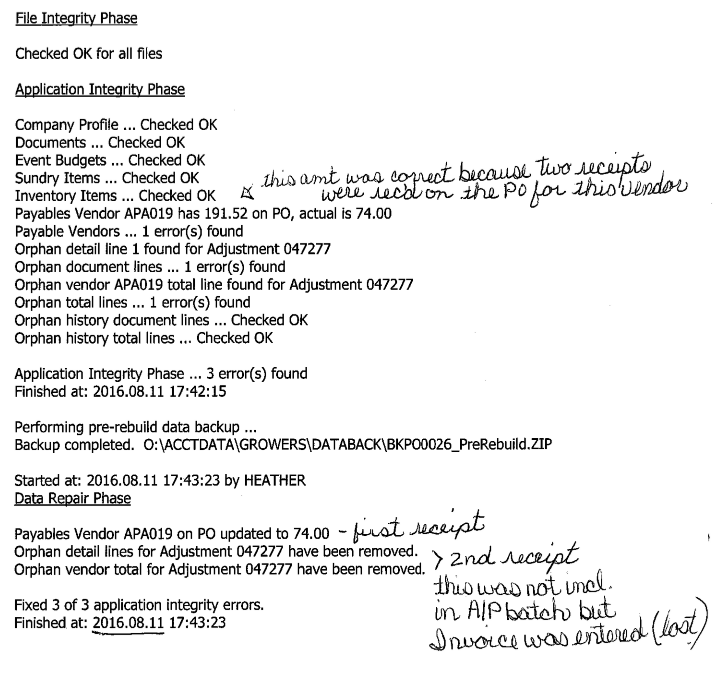 File Integrity Phase
Checked OK for all files
Application Integrity Phase
Company Profile ... Checked OK
Documents ... Checked OK
Event Budgets ... Checked OK
Sundry Items ... Checked OK
this amt was correct because two receipts
Inventory Items ... Checked OK
were rec'd on the PO for this vendor
Payables Vendor APA019 has 191.52 on PO, actual is 74.00
Payable Vendors ... 1 error(s) found
Orphan detail line 1 found for Adjustment 047277
Orphan document lines ... 1 error(s) found
Orphan vendor APA019 total line found for Adjustment 047277
Orphan total lines ... 1 error(s) found
Orphan history document lines ... Checked OK
Orphan history total lines ... Checked OK
Application Integrity Phase ... 3 error(s) found
Finished at: 2016.08.11 17:42:15
Performing pre-rebuild data backup ...
Backup completed. O:\ACCTDATA\GROWERS\DATABACK\BKPO0026_PreRebuild.ZIP
Started at: 2016.08.11 17:43:23 by HEATHER
Data Repair Phase
Payables Vendor APA019 on PO updated to 74.00 - first receipt
Orphan detail lines for Adjustment 047277 have been removed.
> 2nd receipt
Orphan vendor total for Adjustment 047277 have been removed.
this was not incl.
Fixed 3 of 3 application integrity errors.
in A/P batch but
Finished at: 2016.08.11 17:43:23
Invoice was entered (lost)